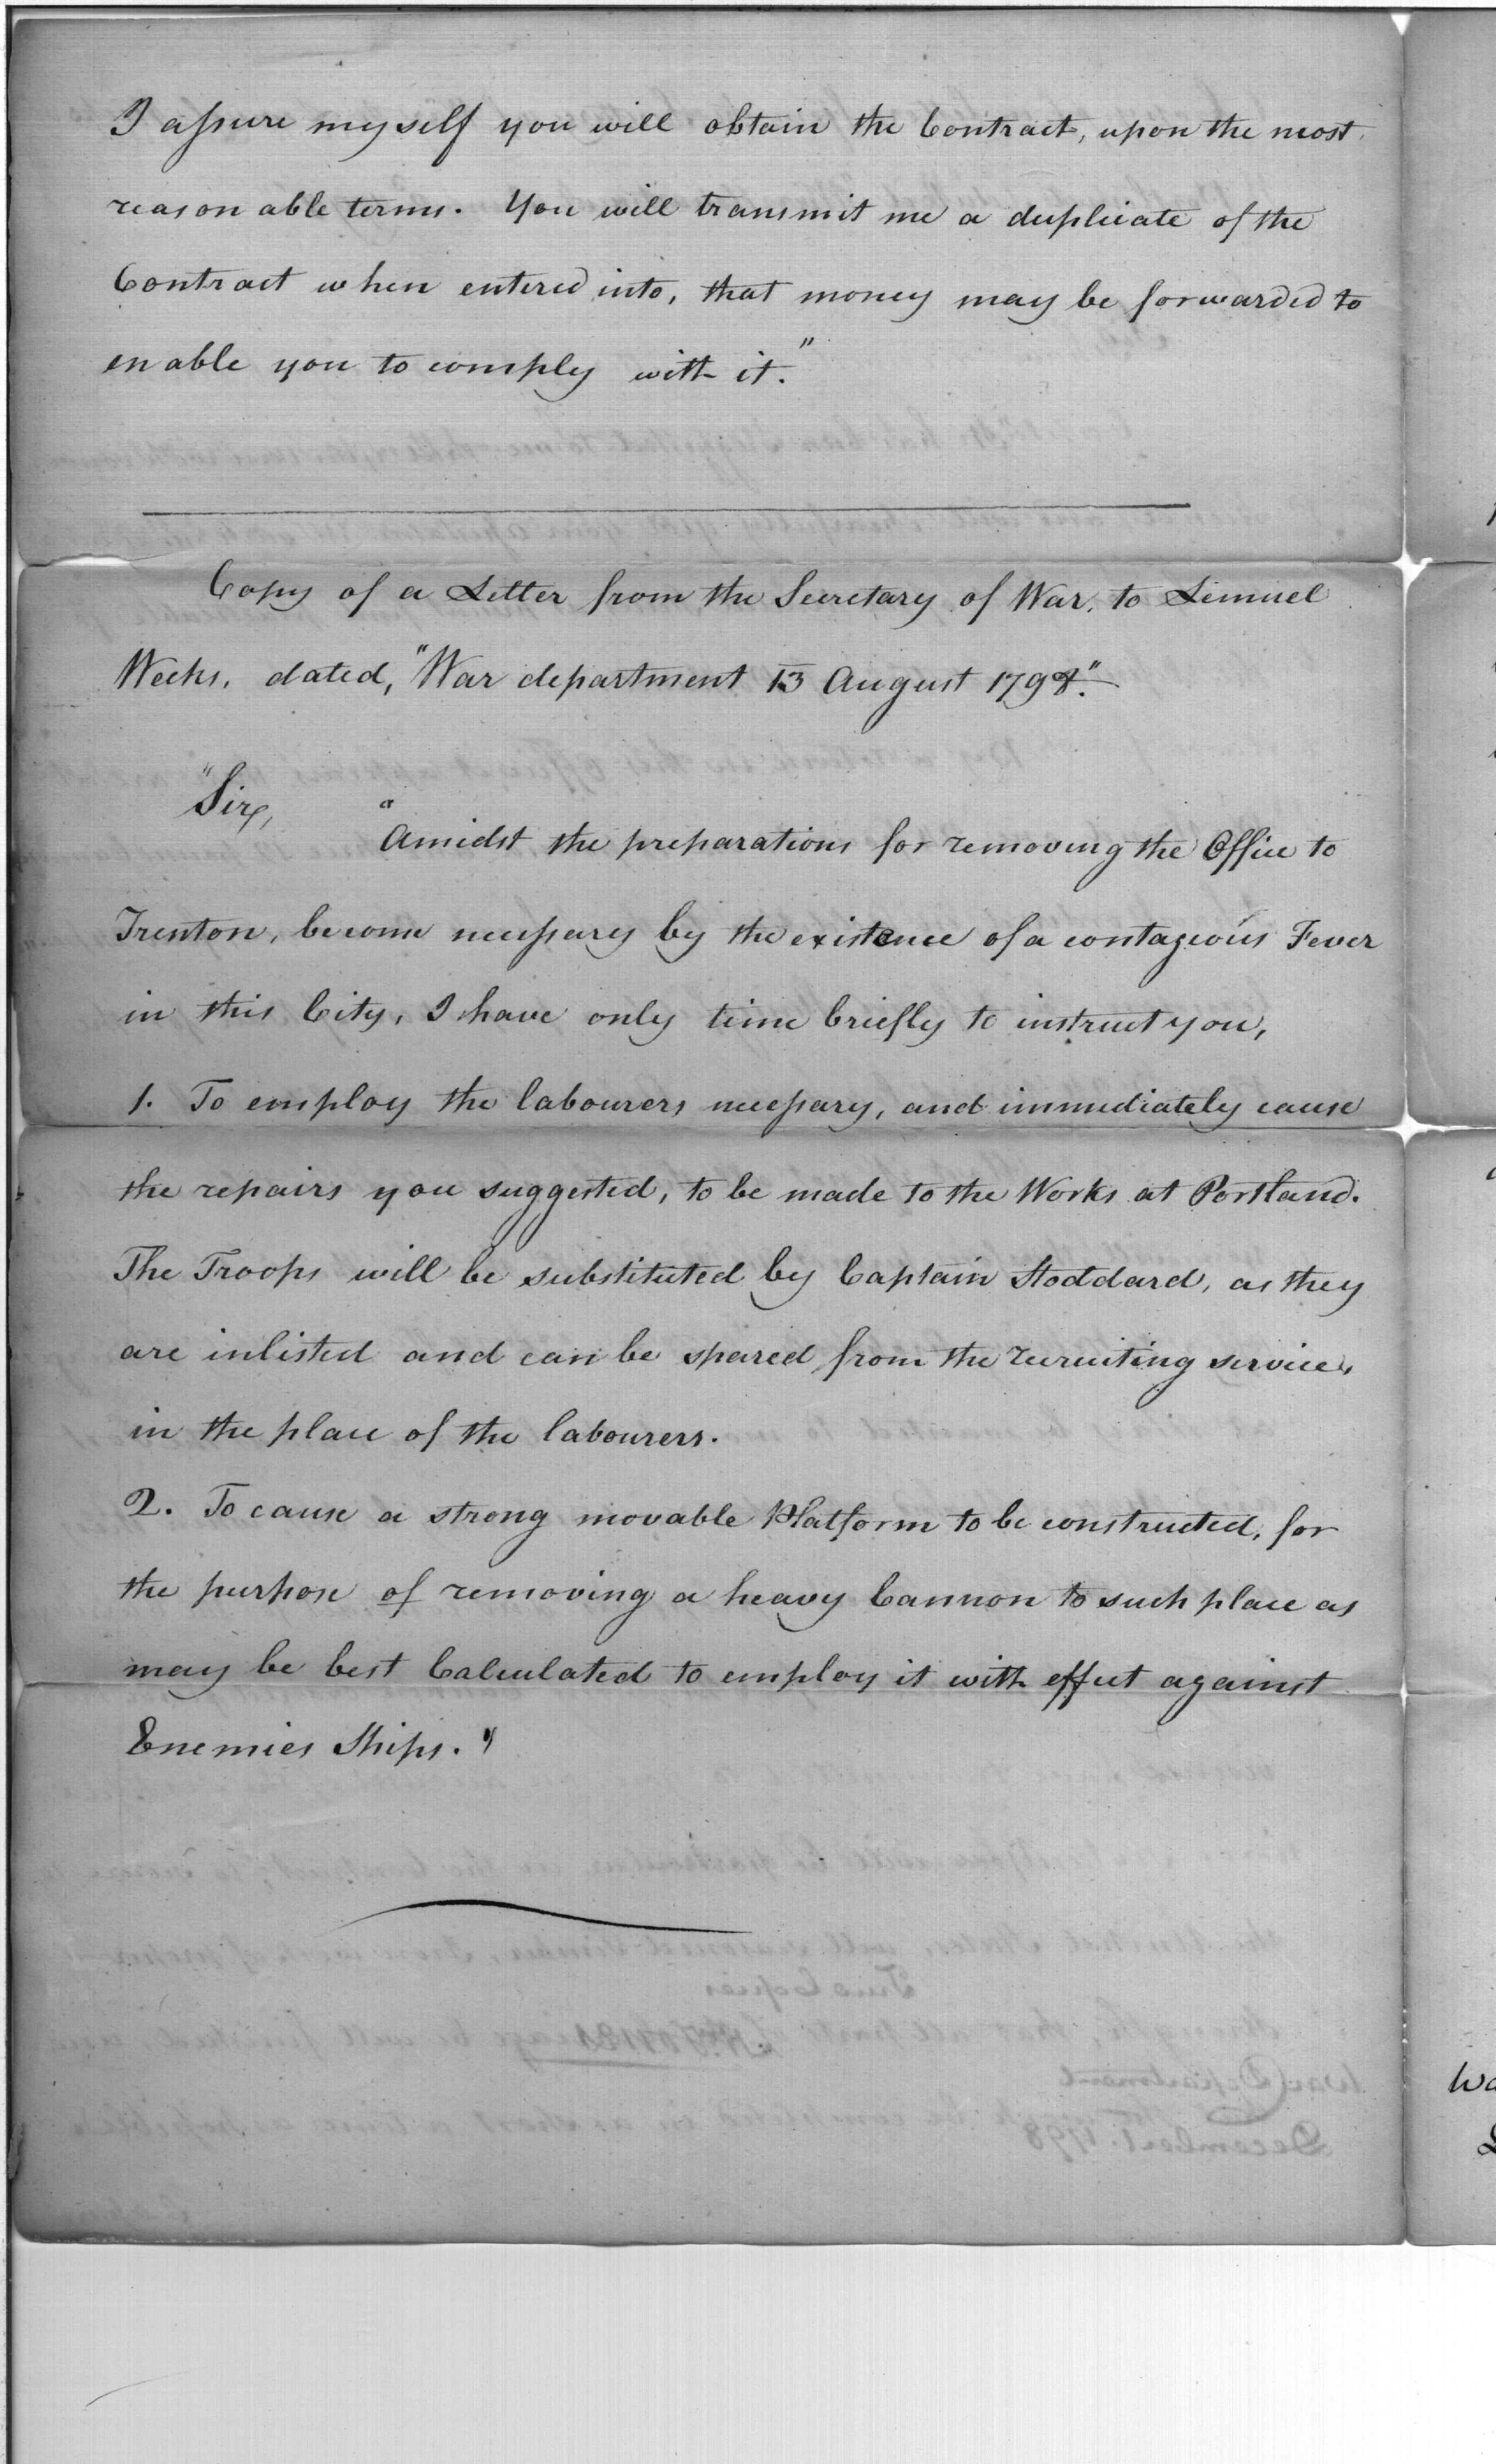 I assure myself you will obtain the Contract, upon the most
reasonable terms. You will transmit me a duplicate of the
Contract when entered into, that money may be forwarded to
enable you to comply with it."
Copy of a Letter from the Secretary of War, to Lemuel
Weeks, dated, "War department 13 August 1798."
"Sir,
"Amidst the preparations for removing the Office to
Trenton, become necessary by the existence of a contageous Fever
in this City, I have only time briefly to instruct you,
1. To employ the labourers necessary, and immediately cause
the repairs you suggested, to be made to the Works at Portland.
The Troops will be substituted by Captain Stoddard, as they
are inlisted and can be spared from the recruiting service,
in the place of the labourers.
2. To cause a strong movable Platform to be constructed, for
the purpose of removing a heavy Cannon to such place as
may be best Calculated to employ it with effect against
Enemies Ships."